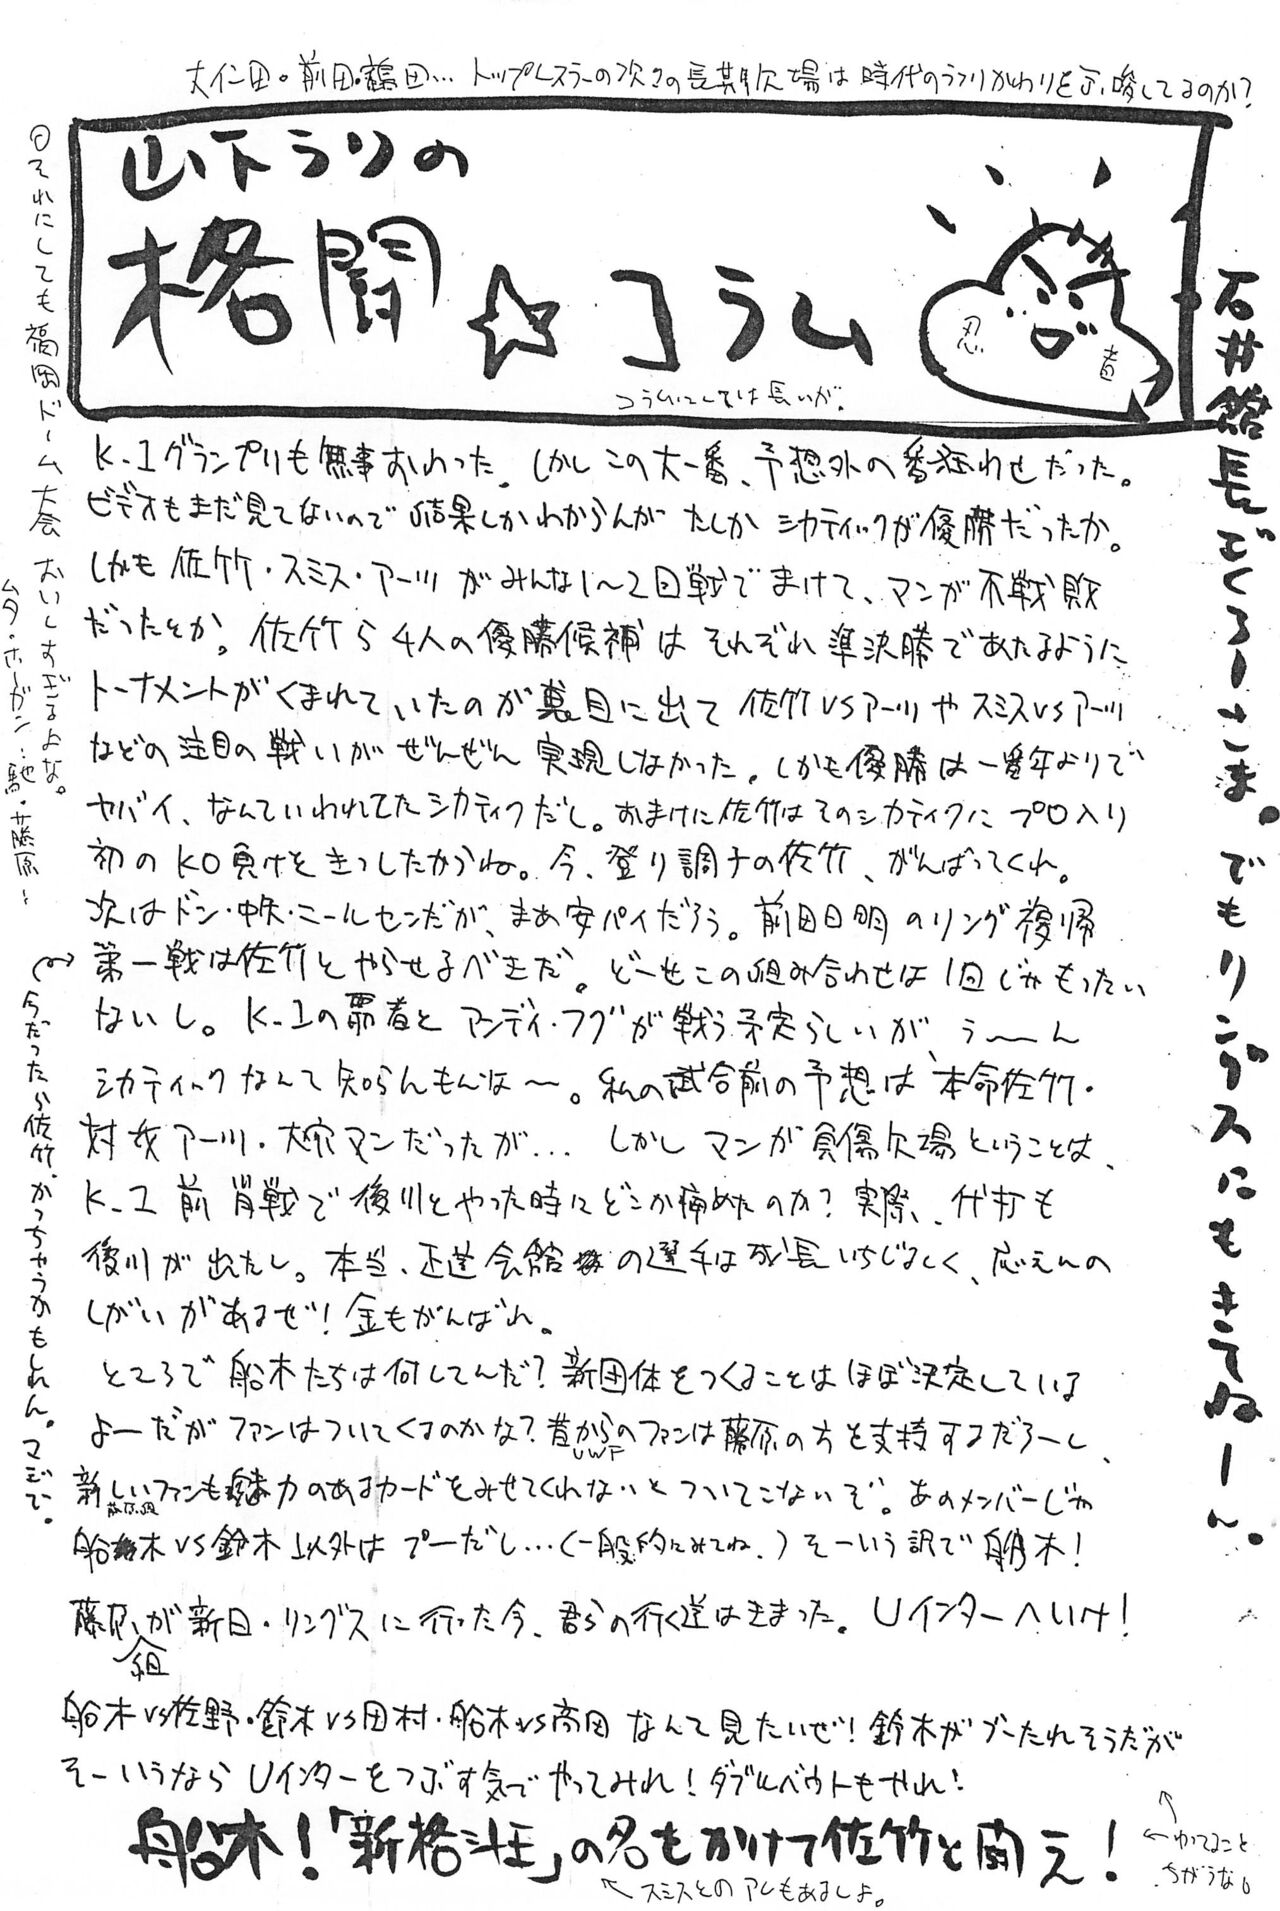 大仁田。前田・鶴田… トップレスラーの次々の長期欠場は時代のうつりかわりを示唆してるのか?
山下うりの
格闘☆コラム
コラムにしては長いが。
忍
者
石井館長ごくろーさま。でもリングスにもきてねーん。
○それにしても福岡ドーム大会おいしすぎるよな。
ムタ・ホーガン…馳・藤原…
K-1グランプリも無事おわった。しかしこの大一番、予想外の番狂わせだった。
ビデオもまだ見てないので結果しかわからんがたしかシカティックが優勝だったか。
しかも佐竹・スミス・アーツがみんな1〜2回戦でまけて、マンが不戦敗
だったとか。佐竹ら4人の優勝候補はそれぞれ準決勝であたるように
トーナメントがくまれていたのが裏目に出て佐竹VSアーツやスミスVSアーツ
などの注目の戦いがぜんぜん実現しなかった。しかも優勝は一番年よりで
ヤバイ、なんていわれてたシカティクだし。おまけに佐竹はそのシカティクにプロ入り
初のKO負けをきっしたからね。今、登り調子の佐竹、がんばってくれ。
次はドン・中矢・ニールセンだが、まあ安パイだろう。前田日明のリング復帰
第一戦は佐竹とやらせるべきだ。どーせこの組み合わせは1回じゃもったい
ないし。K-1の覇者とアンディ・フグが戦う予定らしいが、う〜〜ん
シカティックなんて知らんもんな〜。私の試合前の予想は、本命佐竹・
対抗アーツ・大穴マンだったが… しかしマンが負傷欠場ということは、
K-1前肖戦で後川とやった時にどこか痛めたのか?実際、代打も
後川が出たし。本当、正道会館の選手は成長いちじるしく、応えんの
しがいがあるぜ!金もがんばれ。
ところで船木たちは何してんだ?新団体をつくることはほぼ決定している
よーだがファンはついてくるのかな?昔からのファンは藤原の方を支持するだろーし、
UWF
新しいファンも魅力のあるカードをみせてくれないとついてこないぞ。あのメンバーじゃ
藤原組
船木VS鈴木以外はプーだし…(一般的にみてね。)そーいう訳で船木!
藤原組が新日・リングスに行った今、君らの行く道はきまった。Uインターへいけ!
船木VS佐野・鈴木VS田村・船木VS高田なんて見たいぜ!鈴木がブーたれそうだが
そーいうなら Uインターをつぶす気でやってみれ!ダブルベウトもやれ!
船木!「新格斗王」の名もかけて佐竹と闘え!
↖スミスとのアレもあるしよ。
←ゆってること
ちがうな。
今だったら佐竹、かっちゃうかもしれん。マジで。